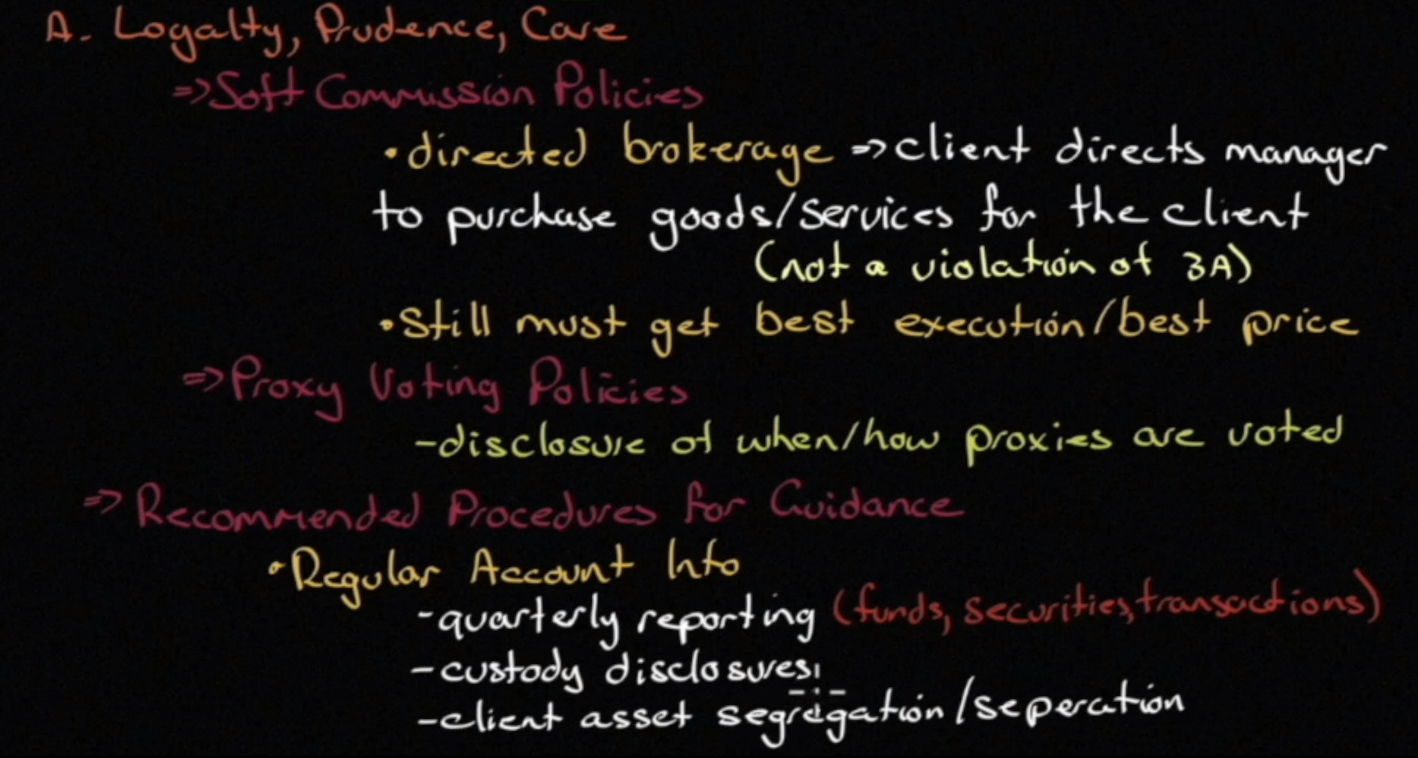 A. Loyalty, Prudence, Care
=> Soft Commission Policies
• directed brokerage => client directs manager
to purchase goods/services for the client
(not a violation of 3A)
• Still must get best execution/best price
=> Proxy Voting Policies
- disclosure of when/how proxies are voted
=> Recommended Procedures for Guidance
• Regular Account Info
- quarterly reporting (funds, securities, transactions)
- custody disclosures
- client asset segregation/seperation